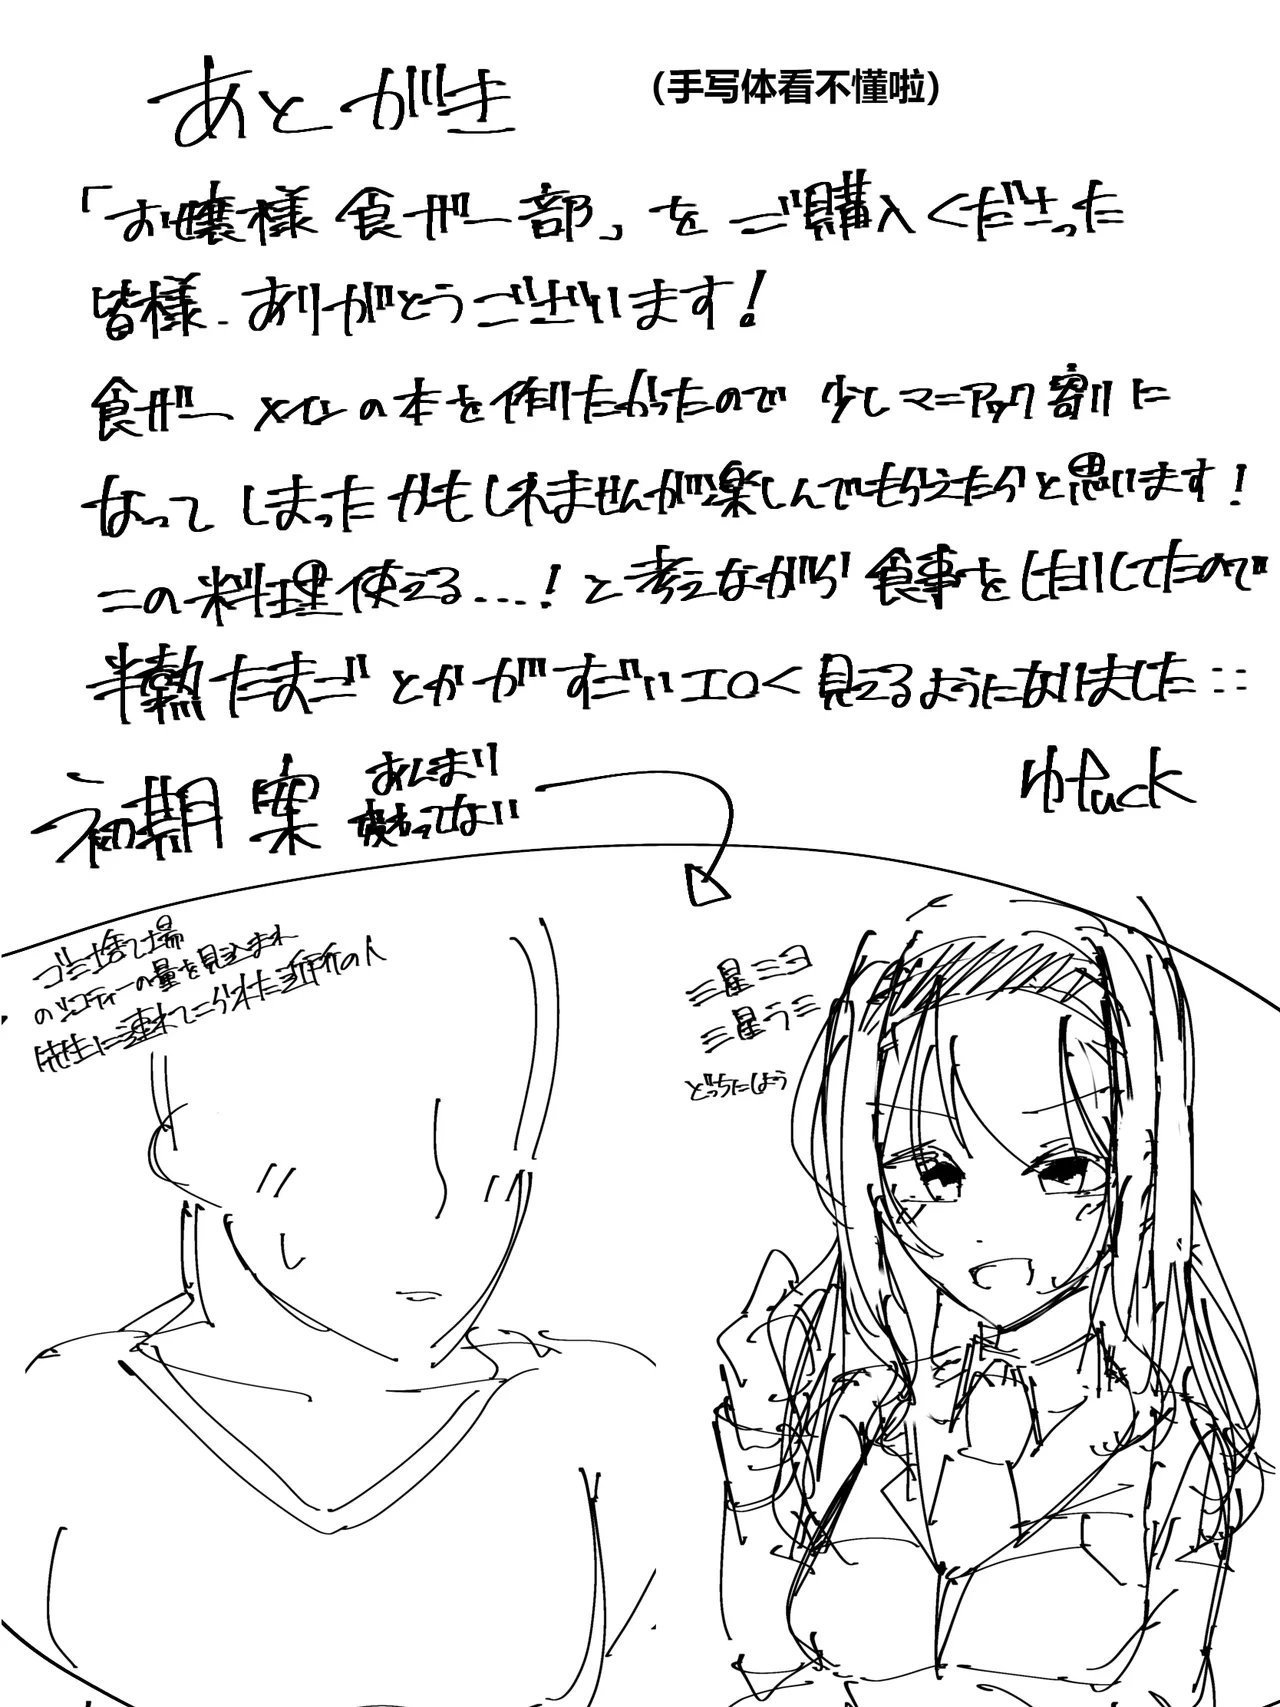 あとがき
(手写体看不懂啦)
「お嬢様食ザー部」をご購入くださった
皆様、ありがとうございます!
食ザーメインの本を作りたかったので少しマニアック割りに
なってしまったかもしれませんが楽しんでもらえたらと思います!
この料理使える...!と考えながら食事をしたりしてたので
半熟たまごとかがすごいエロく見えるようになりました...
初期案
あんまり
変わってない
ゴミ捨て場
の量を見込まれ
先生に連れてこられた近所の人
三星ニコ
三星ラミ
どっちにしよう